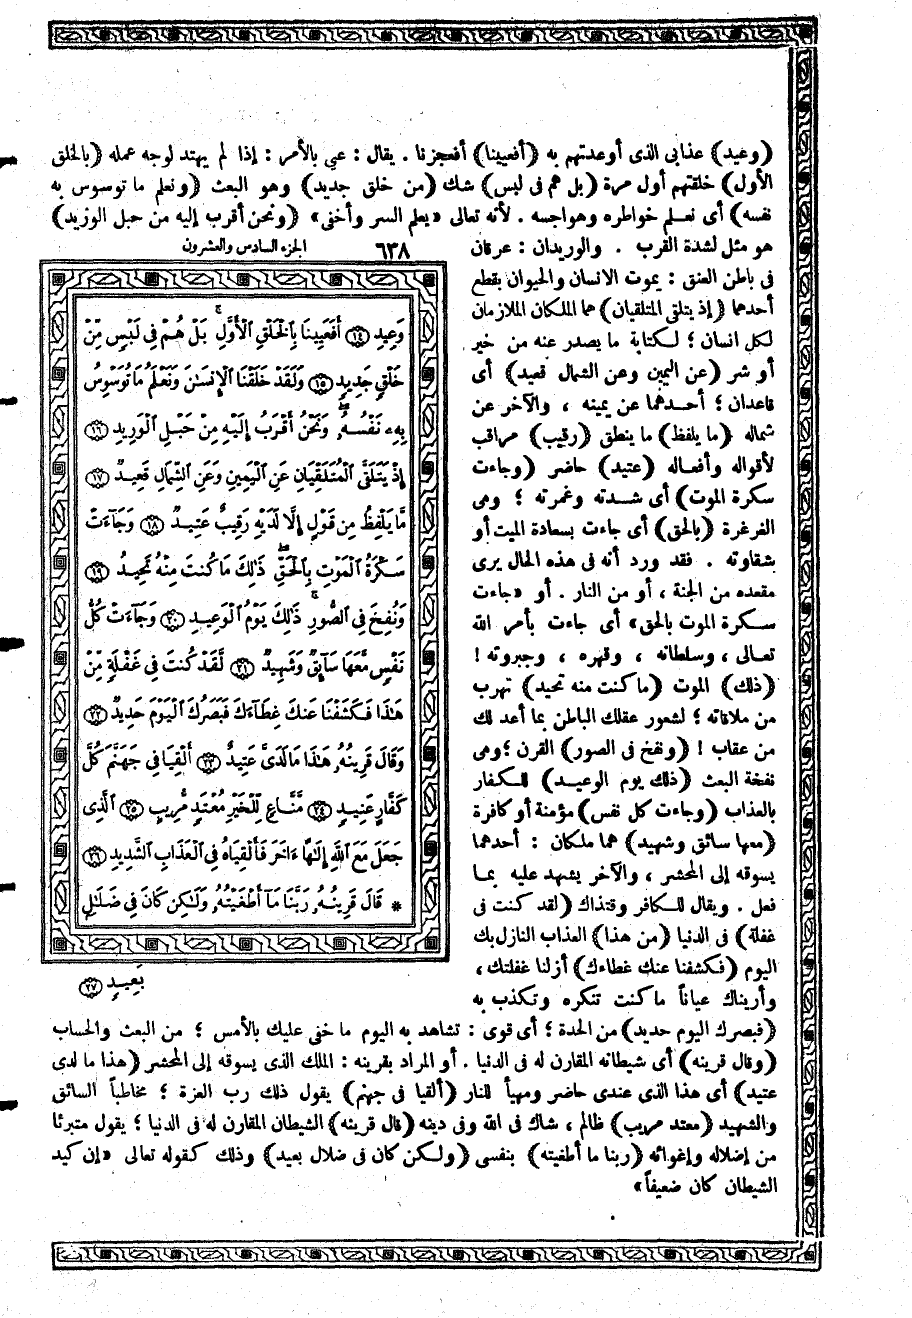 (وعيد) عذابى الذى أوعدتهم به (أفعيينا) أفعجزنا . يقال : عيي بالأمر : إذا لم يهتد لوجه عمله (بالخلق
الأول) خلقتهم أول مرة (بل هم فى لبس) شك (من خلق جديد) وهو البعث (ونعلم ما توسوس به
نفسه) أى نعلم خواطره وهواجسه . لأنه تعالى «يعلم السر وأخفى» (ونحن أقرب إليه من حبل الوريد)
هو مثل لشدة القرب . والوريدان : عرقان
فى باطن العنق : يموت الانسان والحيوان بقطع
أحدهما (إذ يتلقى المتلقيان) هما الملكان الملازمان
لكل انسان ؛ لكتابة ما يصدر عنه من خير
أو شر (عن اليمين وعن الشمال قعيد) أى
قاعدان ؛ أحدهما عن يمينه ، والآخر عن
شماله (ما يلفظ) ما ينطق (رقيب) مراقب
لأقواله وأفعاله (عتيد) حاضر (وجاءت
سكرة الموت) أى شدته وغمرته ؛ وهى
الغرغرة (بالحق) أى جاءت بسعادة الميت أو
شقاوته . فقد ورد أنه فى هذه الحال يرى
مقعده من الجنة ، أو من النار . أو «جاءت
سكرة الموت بالحق» أى جاءت بأمر الله
تعالى ، وسلطانه ، وقهره ، وجبروته !
(ذلك) الموت (ما كنت منه تحيد) تهرب
من ملاقاته ؛ لشعور عقلك الباطن بما أعد لك
من عقاب ! (ونفخ فى الصور) القرن ؛ وهى
نفخة البعث (ذلك يوم الوعيد) للكفار
بالعذاب (وجاءت كل نفس) مؤمنة أو كافرة
(معها سائق وشهيد) هما ملكان : أحدهما
يسوقه إلى المحشر ، والآخر يشهد عليه بما
فعل . ويقال للكافر وقتذاك (لقد كنت فى
غفلة) فى الدنيا (من هذا) العذاب النازل بك
اليوم (فكشفنا عنك غطاءك) أزلنا غفلتك ،
وأريناك عياناً ما كنت تنكره وتكذب به
٦٣٨ الجزء السادس والعشرون
وَعِيدِ ١٤ أَفَعَيِينَا بِالْخَلْقِ الْأَوَّلِ ۚ بَلْ هُمْ فِي لَبْسٍ مِّنْ
خَلْقٍ جَدِيدٍ ١٥ وَلَقَدْ خَلَقْنَا الْإِنسَٰنَ وَنَعْلَمُ مَا تُوَسْوِسُ
بِهِۦ نَفْسُهُۥ ۖ وَنَحْنُ أَقْرَبُ إِلَيْهِ مِنْ حَبْلِ الْوَرِيدِ ١٦
إِذْ يَتَلَقَّى الْمُتَلَقِّيَانِ عَنِ الْيَمِينِ وَعَنِ الشِّمَالِ قَعِيدٌ ١٧
مَّا يَلْفِظُ مِن قَوْلٍ إِلَّا لَدَيْهِ رَقِيبٌ عَتِيدٌ ١٨ وَجَآءَتْ
سَكْرَةُ الْمَوْتِ بِالْحَقِّ ۖ ذَٰلِكَ مَا كُنتَ مِنْهُ تَحِيدُ ١٩
وَنُفِخَ فِي الصُّورِ ۚ ذَٰلِكَ يَوْمُ الْوَعِيدِ ٢٠ وَجَآءَتْ كُلُّ
نَفْسٍ مَّعَهَا سَآئِقٌ وَشَهِيدٌ ٢١ لَّقَدْ كُنتَ فِي غَفْلَةٍ مِّنْ
هَٰذَا فَكَشَفْنَا عَنكَ غِطَآءَكَ فَبَصَرُكَ الْيَوْمَ حَدِيدٌ ٢٢
وَقَالَ قَرِينُهُۥ هَٰذَا مَا لَدَىَّ عَتِيدٌ ٢٣ أَلْقِيَا فِي جَهَنَّمَ كُلَّ
كَفَّارٍ عَنِيدٍ ٢٤ مَّنَّاعٍ لِّلْخَيْرِ مُعْتَدٍ مُّرِيبٍ ٢٥ الَّذِى
جَعَلَ مَعَ اللَّهِ إِلَٰهًا ءَاخَرَ فَأَلْقِيَاهُ فِي الْعَذَابِ الشَّدِيدِ ٢٦
* قَالَ قَرِينُهُۥ رَبَّنَا مَآ أَطْغَيْتُهُۥ وَلَٰكِن كَانَ فِي ضَلَٰلٍۭ
بَعِيدٍ ٢٧
(فبصرك اليوم حديد) من الحدة ؛ أى قوى : تشاهد به اليوم ما خفى عليك بالأمس ؛ من البعث والحساب
(وقال قرينه) أى شيطانه المقارن له فى الدنيا . أو المراد بقرينه : الملك الذى يسوقه إلى المحشر (هذا ما لدى
عتيد) أى هذا الذى عندى حاضر ومهيأ للنار (ألقيا فى جهنم) يقول ذلك رب العزة ؛ مخاطباً السائق
والشهيد (معتد مريب) ظالم ، شاك فى الله وفى دينه (قال قرينه) الشيطان المقارن له فى الدنيا ؛ يقول متبرئا
من إضلاله وإغوائه (ربنا ما أطغيته) بنفسى (ولكن كان فى ضلال بعيد) وذلك كقوله تعالى «إن كيد
الشيطان كان ضعيفاً»